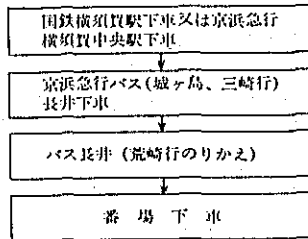 国鉄横須賀駅下車又は京浜急行
横須賀中央駅下車
京浜急行バス(城ヶ島、三崎行)
長井下車
バス長井 (荒崎行のりかえ)
番場下車